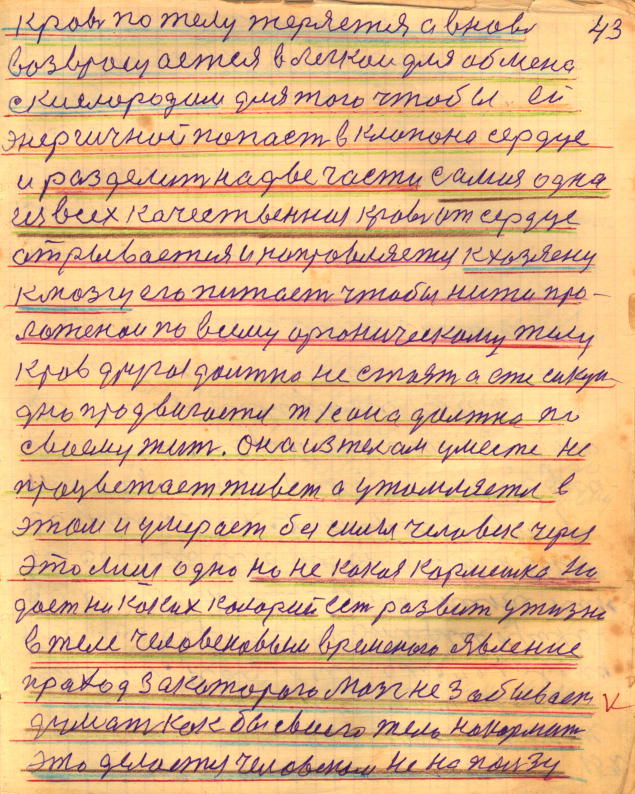 кров по телу теряется а вновь 43
возврощается в легкои для обмена
с кислородом для того чтобы ей
энергичной попаст в клапона сердце
и разделит на две части самая одна
из всех качественная кров от сердце
отрывается и направляету к хозяену
к мозгу его питает чтобы нити про-
ложеной по всему органическому телу
Кров другая должна не стоят а еже секун-
дно продвигается т/с она должна по
своему жит. Она из телам уместе не
процветает живет а утомляетя в
этом и умерает без силы человек через
это лиш одно но не какая кормешка не
дает ни каких калорий ест развит у жизни
в теле человековым временого явление
праход за которого мозг не забывает
думат как бы своего тело накормит
это делаету человеком не на ползу